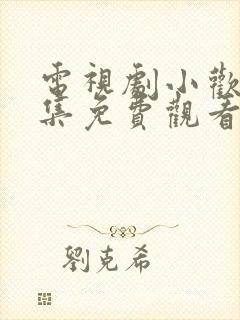 電視劇小歡
集免費觀看
劉克希